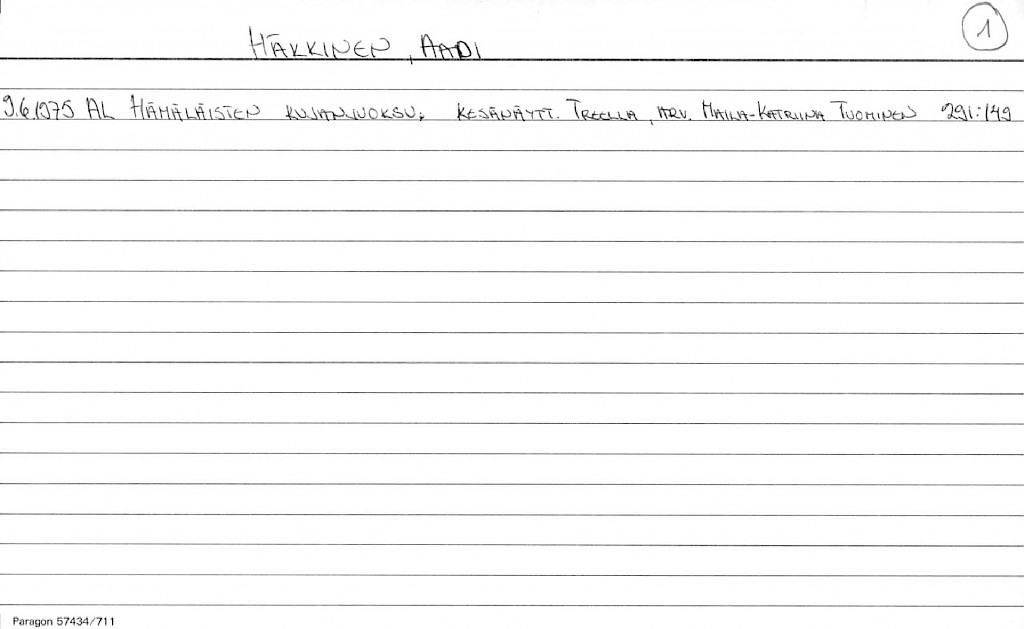 HÄKKINEN, AADI
1
9.6.1975 AL HÄMÄLÄISTEN KUJANJUOKSU; KESÄNÄYTT. TREELLA, ARV. MAILA-KATRIINA TUOMINEN 291:149
Paragon 57434/711